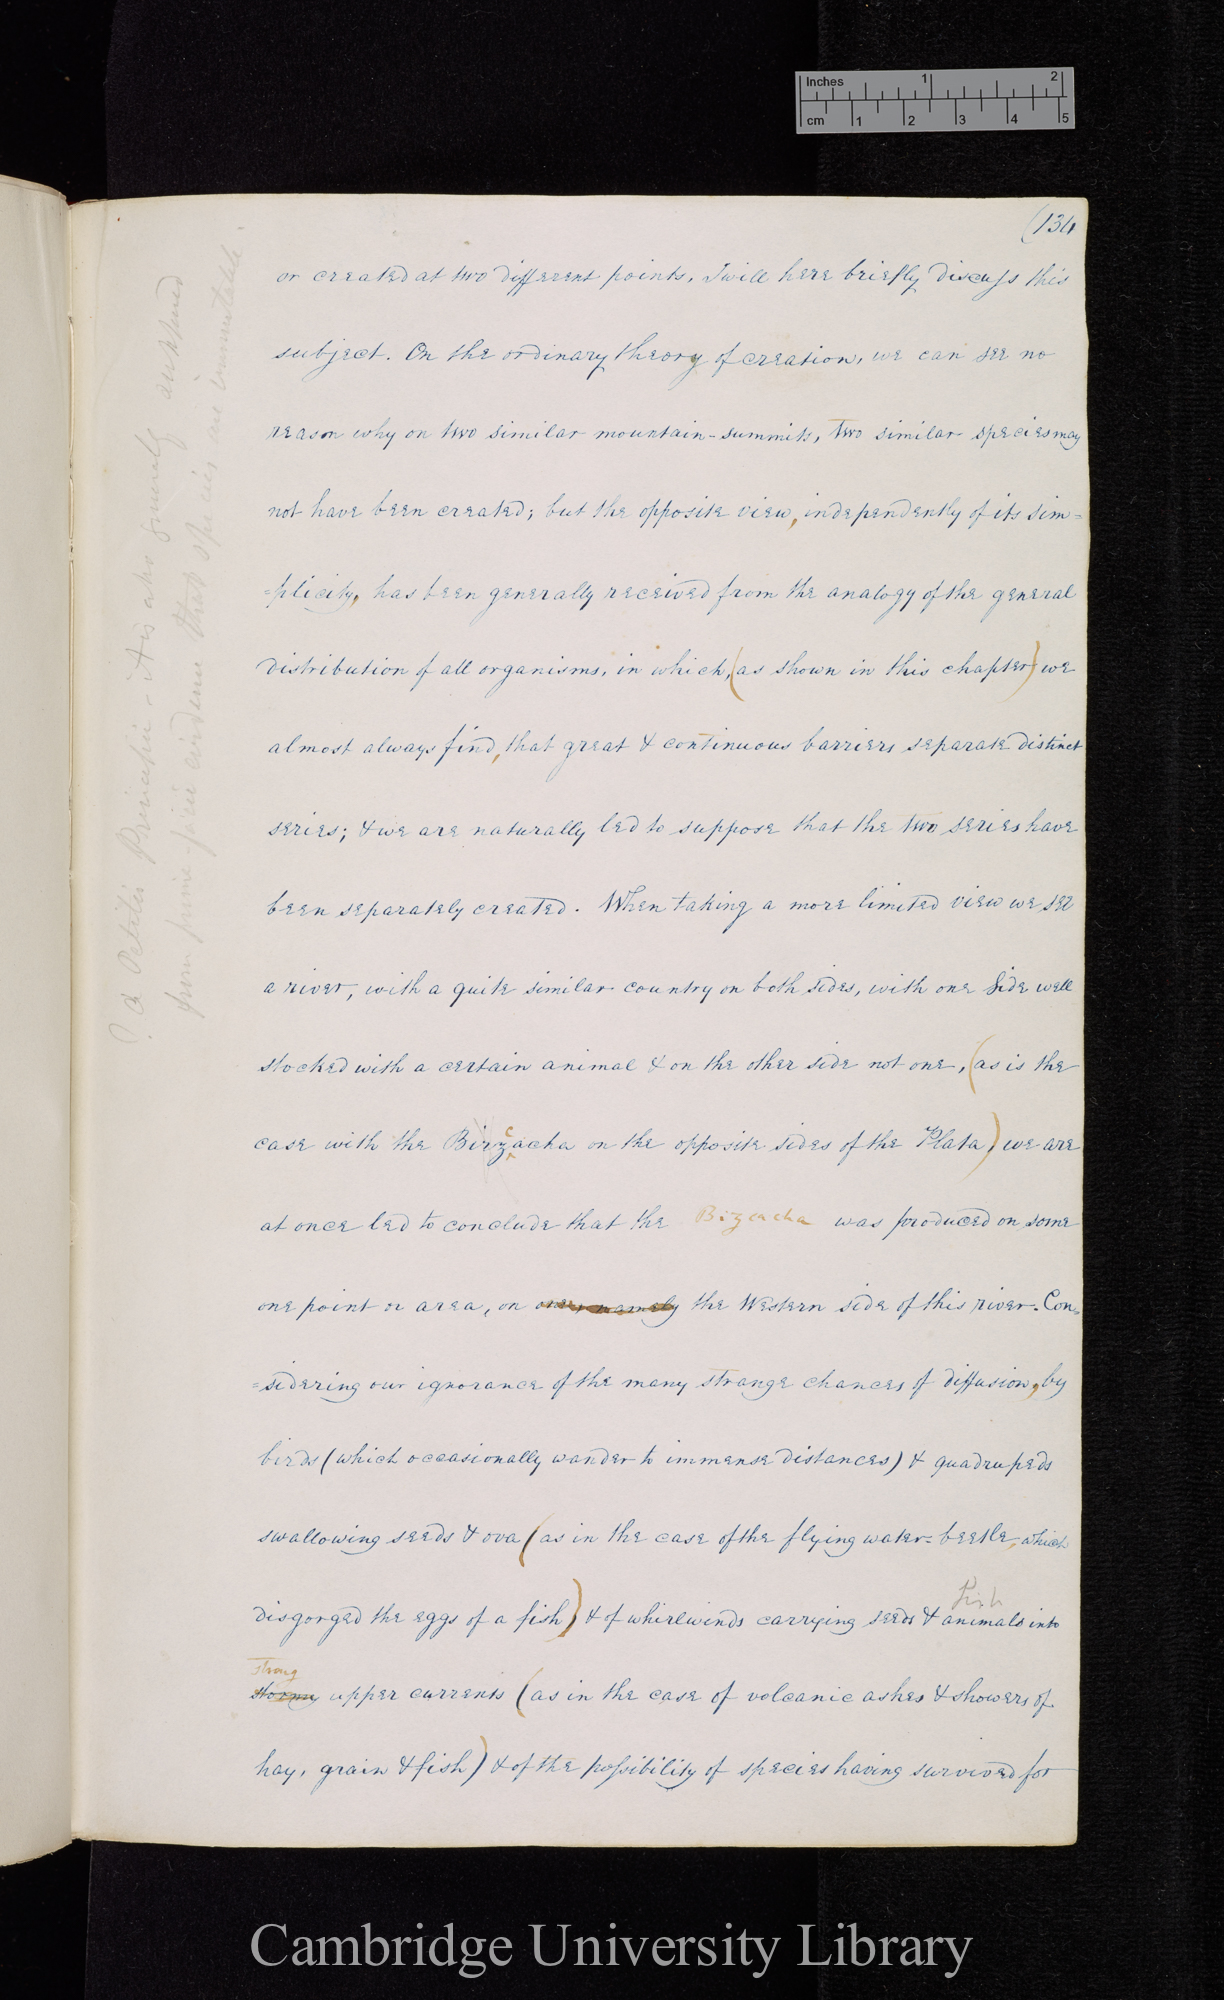 Inches 1 2
cm 1 2 3 4 5
(134
or created at two different points, I will here briefly discuss this
subject. On the ordinary theory of creation, we can see no
reason why on two similar mountain-summits, two similar species may
not have been created; but the opposite view, independently of its sim=
=plicity, has been generally received from the analogy of the general
distribution of all organisms, in which, (as shown in this chapter) we
almost always find, that great & continuous barriers separate distinct
series; & we are naturally led to suppose that the two series have
been separately created. When taking a more limited view we see
a river, with a quite similar country on both sides, with one side well
stocked with a certain animal & on the other side not one, (as is the
c
case with the Bizacha on the opposite sides of the Plata) we are
at once led to conclude that the Bizcacha was produced on some
one point or area, on one, namely the Western side of this river. Con=
=sidering our ignorance of the many strange chances of diffusion, by
birds (which occasionally wander to immense distances) & quadrupeds
swallowing seeds & ova (as in the case of the flying water-beetle, which
Fish
disgorged the eggs of a fish) & of whirlwinds carrying seeds & animals into
strong
stormy upper currents (as in the case of volcanic ashes & showers of
hay, grain & fish) & of the possibility of species having survived for
from evidence that species are immutable.
Cambridge University Library